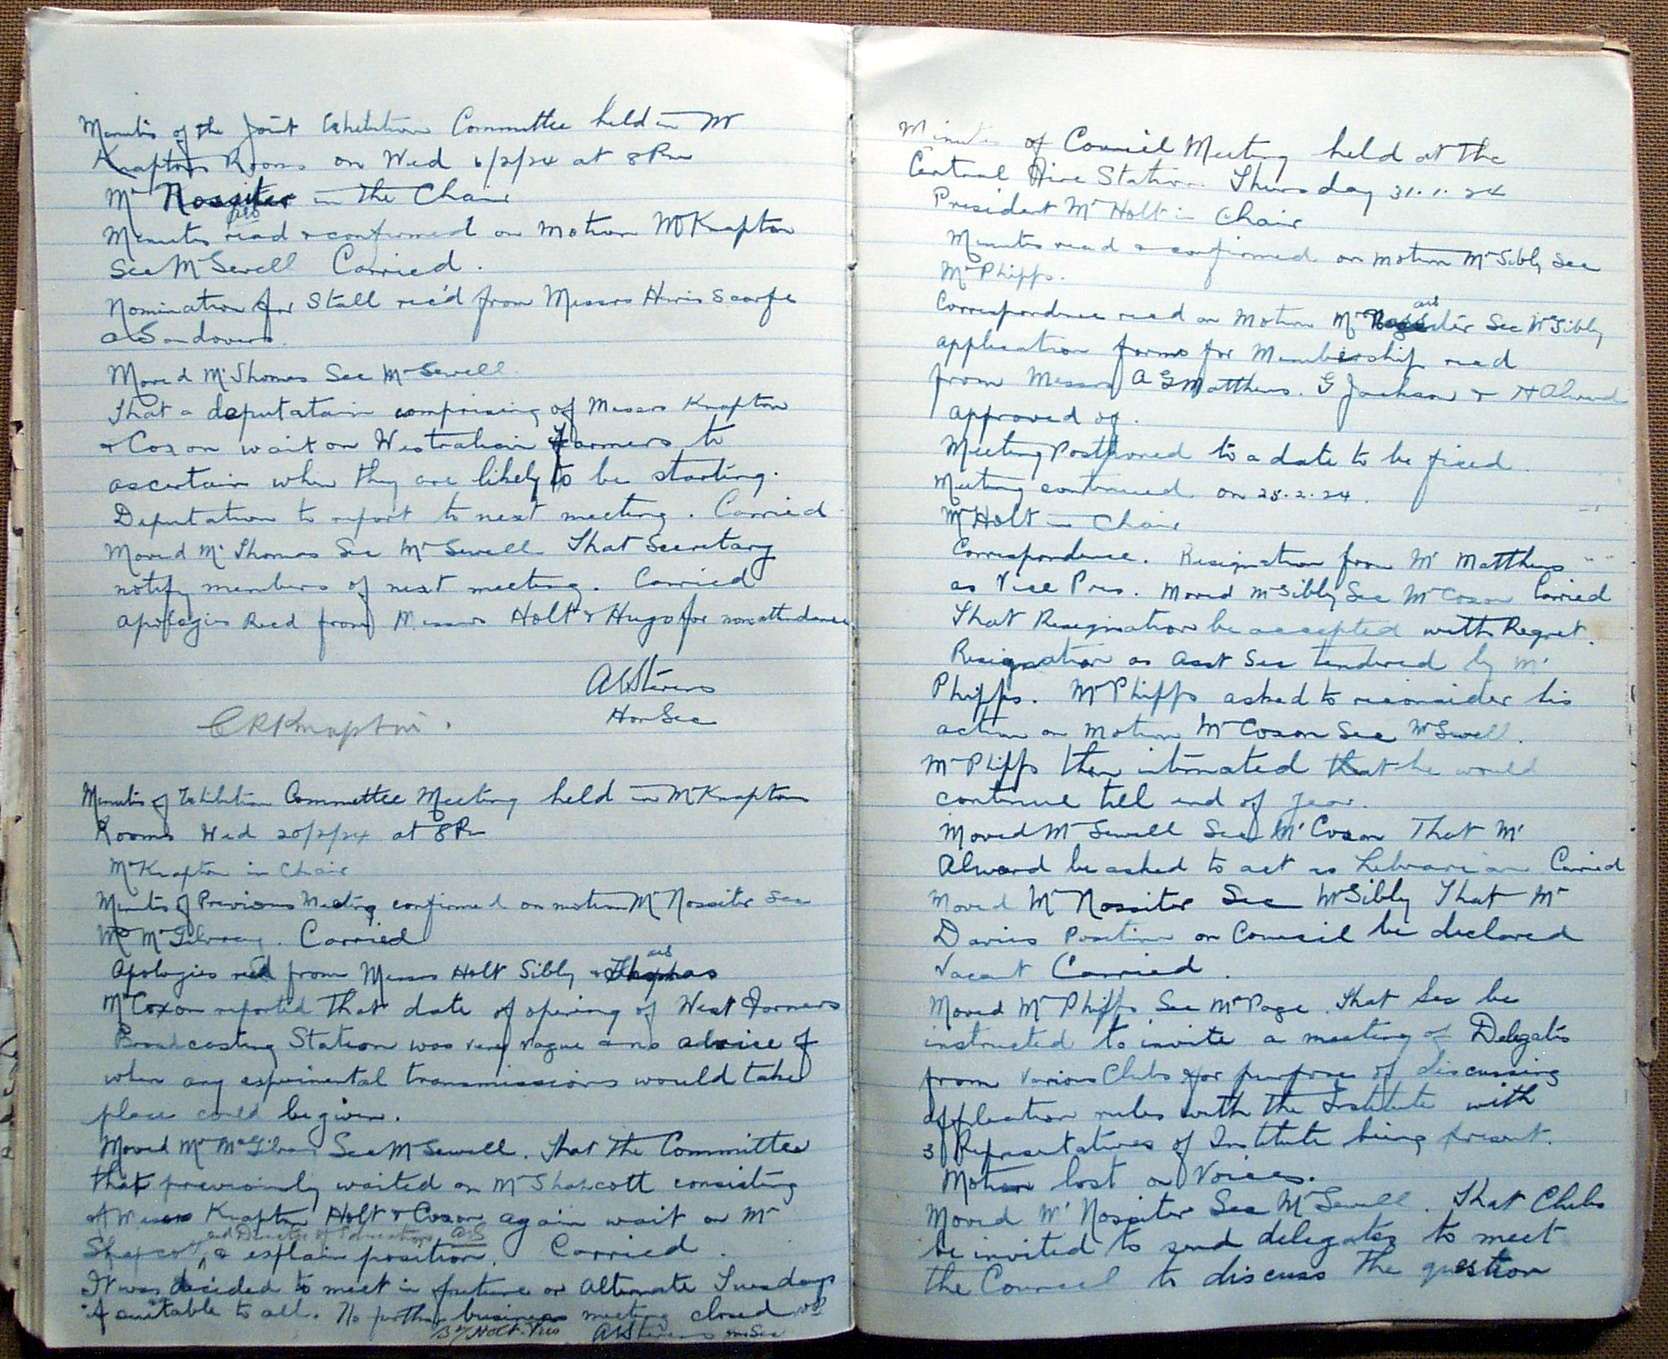 Minutes of the Joint Exhibition Committee held in Mr
Knaptons Rooms on Wed 6/2/24 at 8 Pm
Mr Nossiter in the Chair
Minutes read & confirmed on motion Mr Knapton
Sec Mr Sewell Carried.
Nomination for Stall rec'd from Messrs Harris Scarfe
& Sandovers.
Moved Mr Thomas Sec Mr Sewell
That a deputatain comprising of Messrs Knapton
& Coxon wait on Westralian Farmers to
ascertain when they are likely to be starting.
Deputation to report to next meeting. Carried
Moved Mr Thomas Sec Mr Sewell That Secretary
notify members of next meeting. Carried
Apologies Recd from Messrs Holt & Hugo for non attendance
A Stevens
Hon Sec
C R Knapton.
Minutes of Exhibition Committee Meeting held in Mr Knaptons
Rooms Wed 20/2/24 at 8 Pm
Mr Knapton in Chair
Minutes of Previous Meeting confirmed on motion Mr Nossiter Sec
Mr McGilvray. Carried
Apologies recd from Messrs Holt Sibly & Thomas
Mr Coxon reported that date of opening of West Farmers
Broadcasting Station was very vague and no advice of
when any experimental transmissions would take
place could be given.
Moved Mr McGilvray Sec Mr Sewell. That the Committee
that previously waited on Mr Shapcott consisting
of Messrs Knapton Holt & Coxon again wait on Mr
and Director of Education
Shapcott, & explain position. Carried.
It was decided to meet in future on Alternate Tuesdays
if suitable to all. No further business meeting closed
B Holt Pres A Stevens Hon Sec
Minutes of Council Meeting held at the
Central Fire Station. Thursday 31.1.24
President Mr Holt in Chair
Minutes read & confirmed on motion Mr Sibly Sec
Mr Phipps.
Correspondence read on Motion Mr Nossiter Sec Mr Sibly
application forms for Membership read
from Messrs A G Matthews. G Jackson & H Alward
approved of.
Meeting Postponed to a date to be fixed
Meeting continued on 28.2.24.
Mr Holt in Chair
Correspondence. Resignation from Mr Matthews
as Vice Pres. Moved Mr Sibly Sec Mr Coxon Carried
That Resignation be accepted with Regret.
Resignation as Asst Sec tendered by Mr
Phipps. Mr Phipps asked to reconsider his
action on motion Mr Coxon Sec Mr Sewell.
Mr Phipps then intimated that he would
continue till end of year.
Moved Mr Sewell Sec Mr Coxon That Mr
Alward be asked to act as Librarian Carried
Moved Mr Nossiter Sec Mr Sibly That Mr
Davies Position on Council be declared
vacant Carried.
Moved Mr Phipps Sec Mr Page. That Sec be
instructed to invite a meeting of Delegates
from Various Clubs for purpose of discussing
application rules with the Institute with
3 Representatives of Institute being present.
Motion lost on Voices.
Moved Mr Nossiter Sec Mr Sewell. That Clubs
be invited to send delegates to meet
the Council to discuss the question